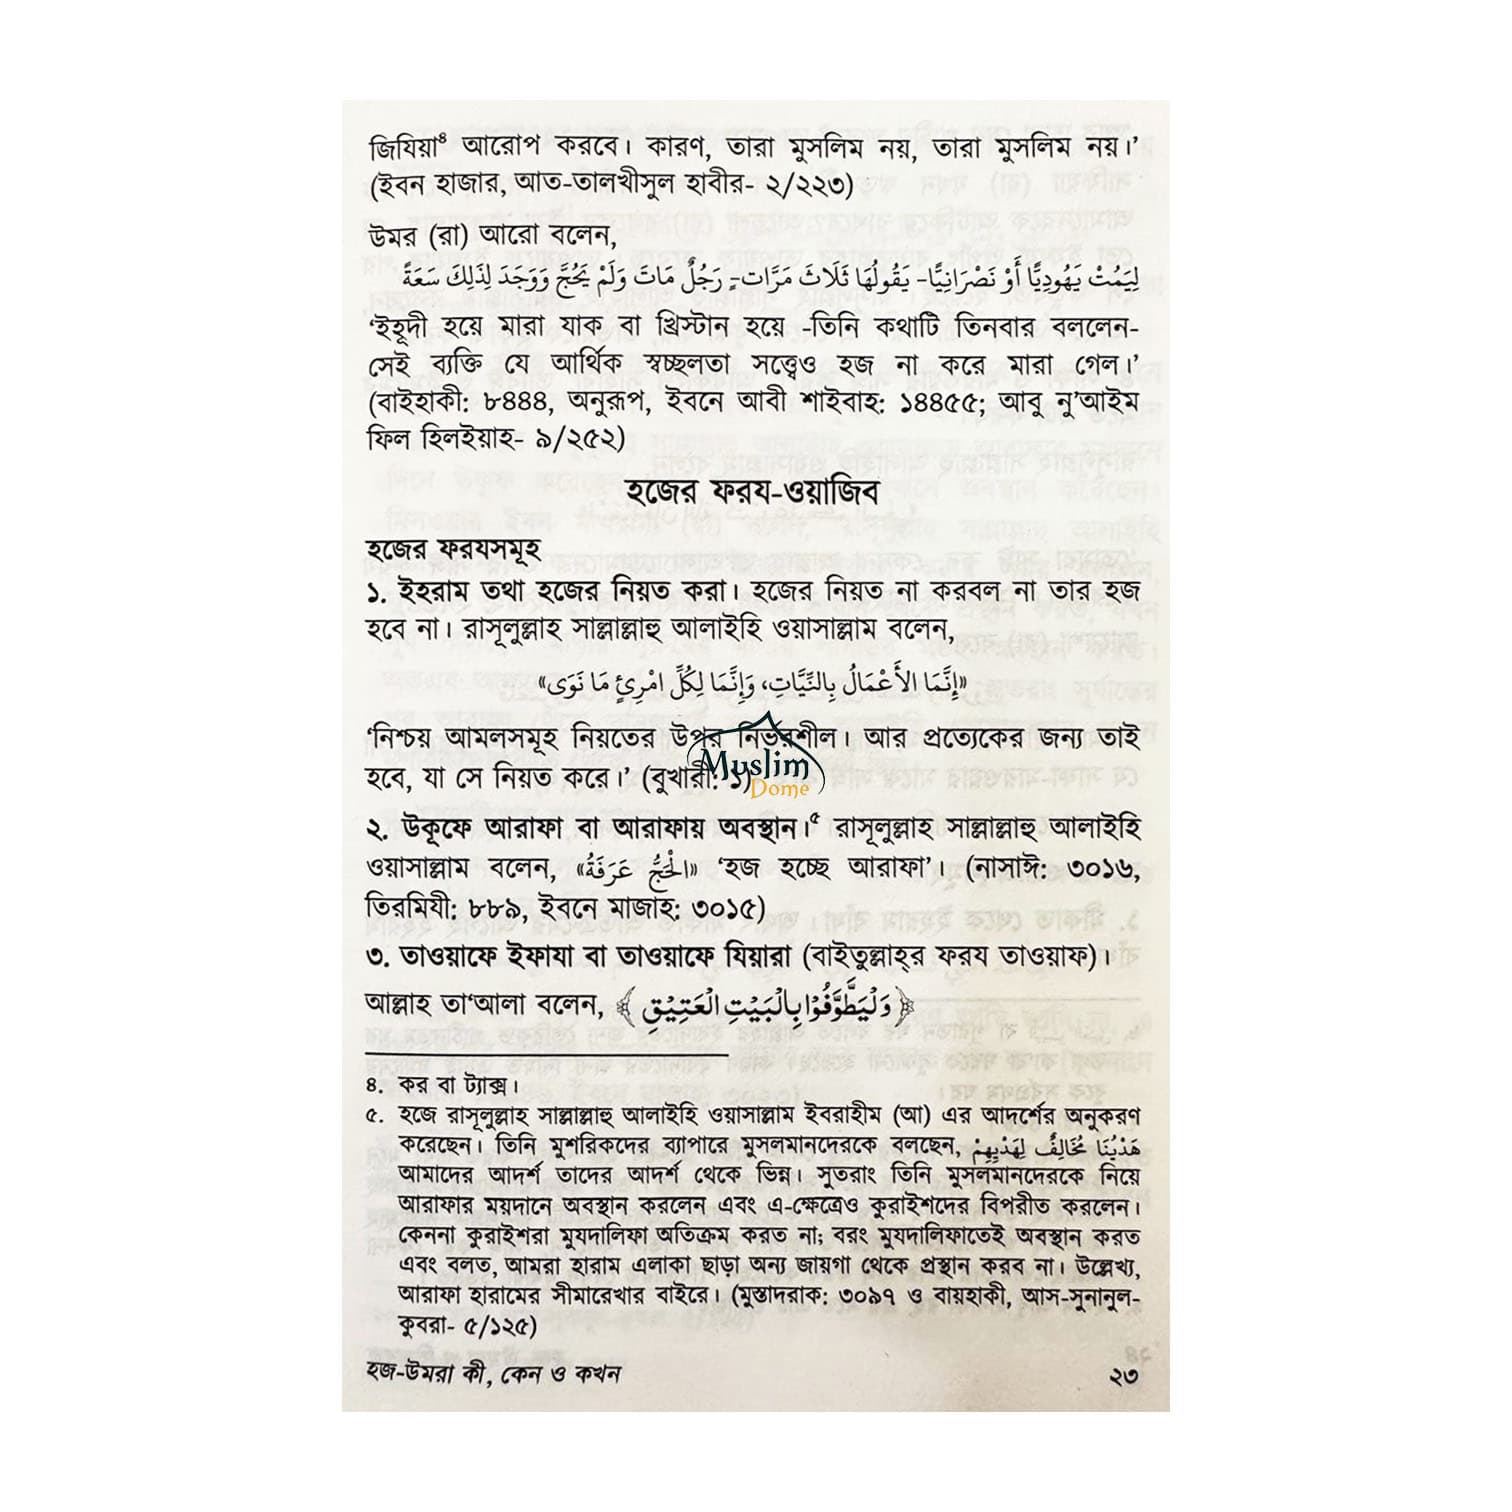 জিযিয়া⁸ আরোপ করবে। কারণ, তারা মুসলিম নয়, তারা মুসলিম নয়।’
(ইবন হাজার, আত-তালখীসুল হাবীর- ২/২২৩)
উমর (রা) আরো বলেন,
لِيَمُتْ يَهُودِيًّا أَوْ نَصْرَانِيًّا- يَقُولُهَا ثَلَاثَ مَرَّاتٍ- رَجُلٌ مَاتَ وَلَمْ يَحُجَّ وَوَجَدَ لِذَلِكَ سَعَةً
‘ইহূদী হয়ে মারা যাক বা খ্রিস্টান হয়ে -তিনি কথাটি তিনবার বললেন-
সেই ব্যক্তি যে আর্থিক স্বচ্ছলতা সত্ত্বেও হজ না করে মারা গেল।’
(বাইহাকী: ৮৪৪৪, অনুরূপ, ইবনে আবী শাইবাহ: ১৪৪৫৫; আবু নু’আইম
ফিল হিলইয়াহ- ৯/২৫২)
হজের ফরয-ওয়াজিব
হজের ফরযসমূহ
১. ইহরাম তথা হজের নিয়ত করা। হজের নিয়ত না করবল না তার হজ
হবে না। রাসূলুল্লাহ সাল্লাল্লাহু আলাইহি ওয়াসাল্লাম বলেন,
«إِنَّمَا الأَعْمَالُ بِالنِّيَّاتِ، وَإِنَّمَا لِكُلِّ امْرِئٍ مَا نَوَى»
‘নিশ্চয় আমলসমূহ নিয়তের উপর নির্ভরশীল। আর প্রত্যেকের জন্য তাই
হবে, যা সে নিয়ত করে।’ (বুখারী: ১)
Muslim
Dome
২. উকূফে আরাফা বা আরাফায় অবস্থান।⁵ রাসূলুল্লাহ সাল্লাল্লাহু আলাইহি
ওয়াসাল্লাম বলেন, «الْحَجُّ عَرَفَةُ» ‘হজ হচ্ছে আরাফা’। (নাসাঈ: ৩০১৬,
তিরমিযী: ৮৮৯, ইবনে মাজাহ: ৩০১৫)
৩. তাওয়াফে ইফাযা বা তাওয়াফে যিয়ারা (বাইতুল্লাহ্‌র ফরয তাওয়াফ)।
আল্লাহ তা‘আলা বলেন, ﴿وَلْيَطَّوَّفُوا بِالْبَيْتِ الْعَتِيقِ﴾
৪. কর বা ট্যাক্স।
৫. হজে রাসূলুল্লাহ সাল্লাল্লাহু আলাইহি ওয়াসাল্লাম ইবরাহীম (আ) এর আদর্শের অনুকরণ
করেছেন। তিনি মুশরিকদের ব্যাপারে মুসলমানদেরকে বলছেন, هَدْيُنَا مُخَالِفٌ لِهَدْيِهِمْ
আমাদের আদর্শ তাদের আদর্শ থেকে ভিন্ন। সুতরাং তিনি মুসলমানদেরকে নিয়ে
আরাফার ময়দানে অবস্থান করলেন এবং এ-ক্ষেত্রেও কুরাইশদের বিপরীত করলেন।
কেননা কুরাইশরা মুযদালিফা অতিক্রম করত না; বরং মুযদালিফাতেই অবস্থান করত
এবং বলত, আমরা হারাম এলাকা ছাড়া অন্য জায়গা থেকে প্রস্থান করব না। উল্লেখ্য,
আরাফা হারামের সীমারেখার বাইরে। (মুস্তাদরাক: ৩০৯৭ ও বায়হাকী, আস-সুনানুল-
কুবরা- ৫/১২৫)
হজ-উমরা কী, কেন ও কখন
২৩